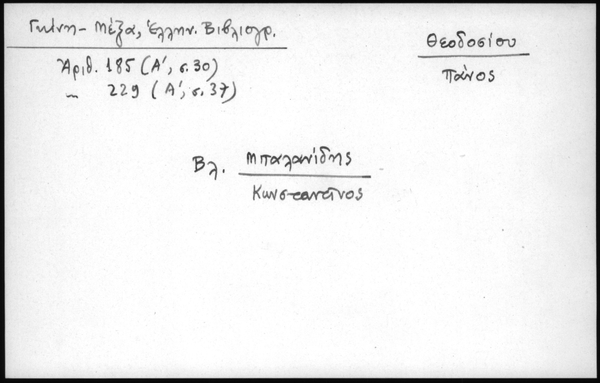 Γκίνη - Μέξα, Ἑλλην. Βιβλιογρ.
Ἀριθ. 185 (Α', σ. 30)
〃 229 (Α', σ. 37)
Θεοδοσίου
Πάνος
Βλ. Μπαλανίδης
Κωνσταντῖνος